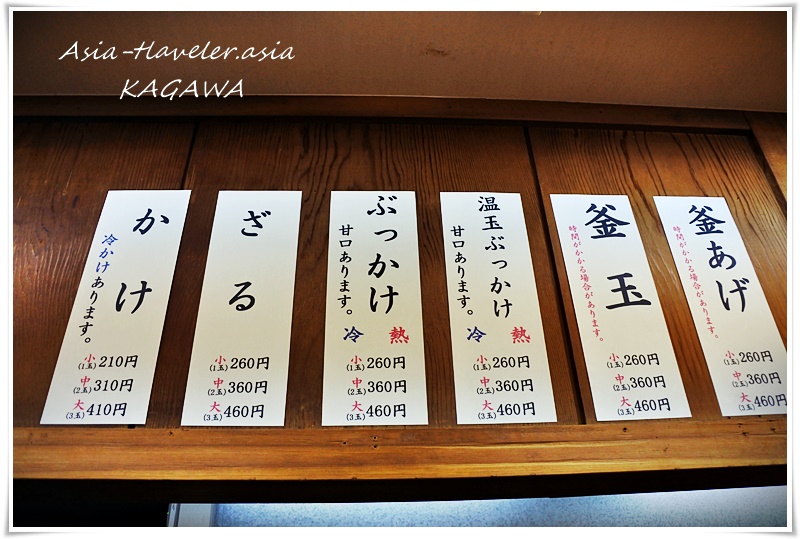 Asia-traveler.asia
KAGAWA
かけ
冷かけあります。
小(1玉)210円
中(2玉)310円
大(3玉)410円
ざる
小(1玉)260円
中(2玉)360円
大(3玉)460円
ぶっかけ
甘口あります。
冷 熱
小(1玉)260円
中(2玉)360円
大(3玉)460円
温玉ぶっかけ
甘口あります。
冷 熱
小(1玉)260円
中(2玉)360円
大(3玉)460円
釜玉
時間がかかる場合があります。
小(1玉)260円
中(2玉)360円
大(3玉)460円
釜あげ
時間がかかる場合があります。
小(1玉)260円
中(2玉)360円
大(3玉)460円